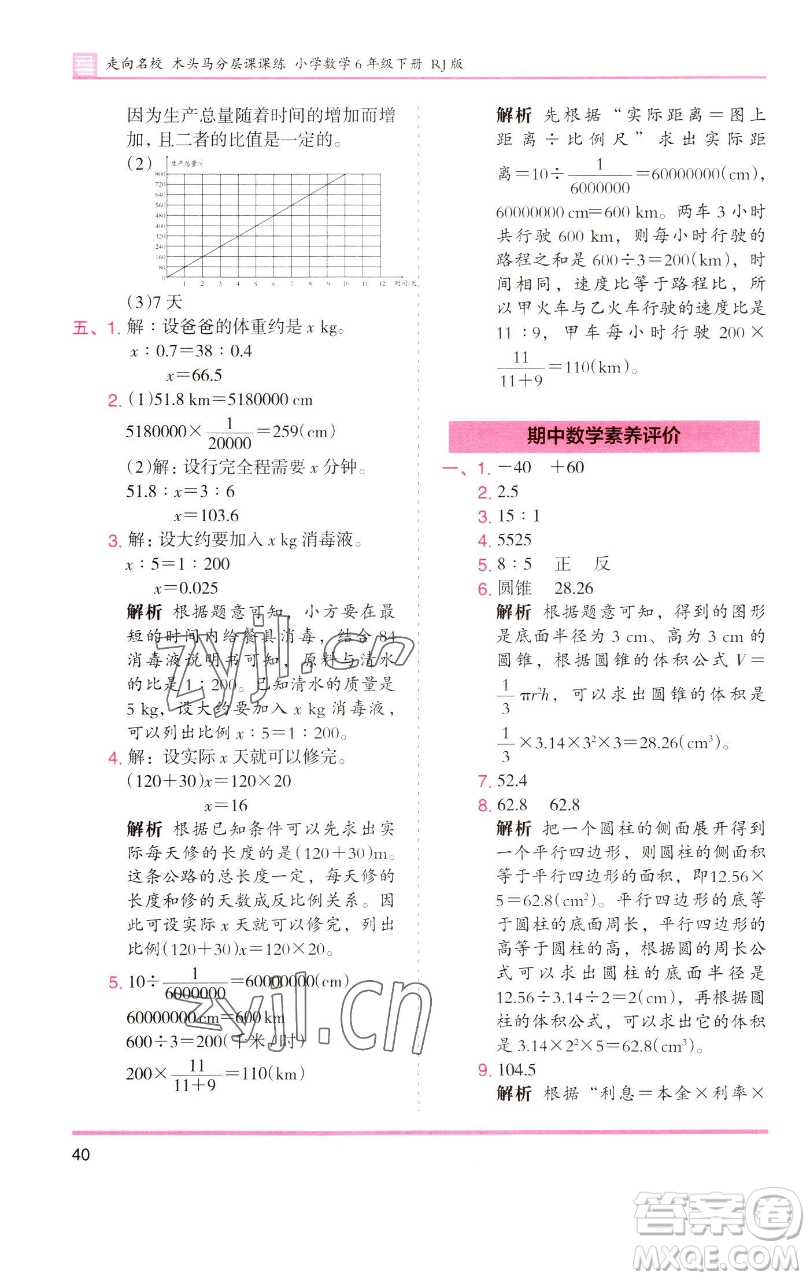 走向名校 木头马分层课课练 小学数学6年级下册 RJ版
因为生产总量随着时间的增加而增
加,且二者的比值是一定的。
(2)
生产总量/t
800
720
640
560
480
400
320
240
160
80
0
1 2 3 4 5 6 7 8 9 10 11 12 时间/天
(3)7 天
五、1. 解:设爸爸的体重约是 x kg。
x:0.7=38:0.4
x=66.5
2. (1)51.8 km=5180000 cm
5180000×1/20000=259(cm)
(2)解:设行完全程需要 x 分钟。
51.8:x=3:6
x=103.6
3. 解:设大约要加入 x kg 消毒液。
x:5=1:200
x=0.025
解析 根据题意可知,小方要在最
短的时间内给餐具消毒,结合 84
消毒液说明书可知,原料与清水
的比是 1:200。已知清水的质量是
5 kg,设大约要加入 x kg 消毒液,
可以列出比例 x:5=1:200。
4. 解:设实际 x 天就可以修完。
(120+30)x=120×20
x=16
解析 根据已知条件可以先求出实
际每天修的长度是(120+30)m。
这条公路的总长度一定,每天修的
长度和修的天数成反比例关系。因
此可设实际 x 天就可以修完,列出
比例(120+30)x=120×20。
5. 10÷1/6000000=60000000(cm)
60000000cm=600km
600÷3=200(千米/时)
200×11/(11+9)=110(km)
解析 先根据“实际距离=图上
距离÷比例尺”求出实际距
离=10÷1/6000000=60000000(cm),
60000000 cm=600 km。两车 3 小时
共行驶 600 km,则每小时行驶的
路程之和是 600÷3=200(km)。时
间相同,速度比等于路程比,所
以甲火车与乙火车行驶的速度比是
11:9,甲车每小时行驶 200×
11/(11+9)=110(km)。
期中数学素养评价
一、1. -40 +60
2. 2.5
3. 15:1
4. 5525
5. 8:5 正 反
6. 圆锥 28.26
解析 根据题意可知,得到的图形
是底面半径为 3 cm、高为 3 cm 的
圆锥,根据圆锥的体积公式 V=
1/3πr²h,可以求出圆锥的体积是
1/3×3.14×3²×3=28.26(cm³)。
7. 52.4
8. 62.8 62.8
解析 把一个圆柱的侧面展开得到
一个平行四边形,则圆柱的侧面积
等于平行四边形的面积,即12.56×
5=62.8(cm²)。平行四边形的底等
于圆柱的底面周长,平行四边形的
高等于圆柱的高。根据圆的周长公
式可以求出圆柱的底面半径是
12.56÷3.14÷2=2(cm),再根据圆
柱的体积公式,可以求出它的体积是
3.14×2²×5=62.8(cm³)。
9. 104.5
解析 根据“利息=本金×利率×
40
zyjl.cn
zyjl.cn
答案圈
MXQE.COM